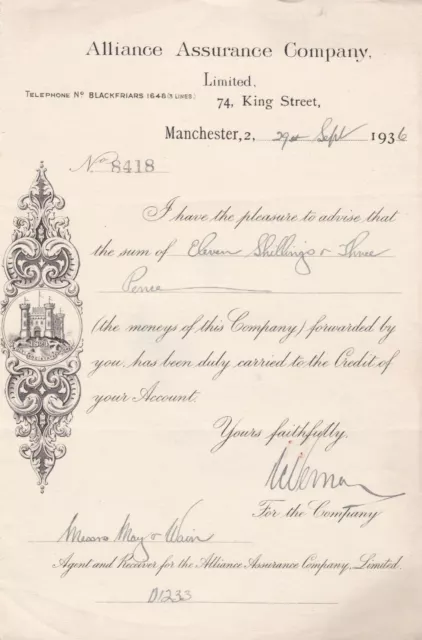 Alliance Assurance Company,
Limited,
TELEPHONE Nº BLACKFRIARS 1646 (5 LINES)
74, King Street,
Manchester, 2, 29th Sept 1936
No 8418
I have the pleasure to advise that
the sum of Eleven Shillings & Three
Pence
(the moneys of this Company) forwarded by
you, has been duly carried to the Credit of
your Account.
Yours faithfully,
For the Company
Messrs May & Wain
Agent and Receiver for the Alliance Assurance Company, Limited.
D1233